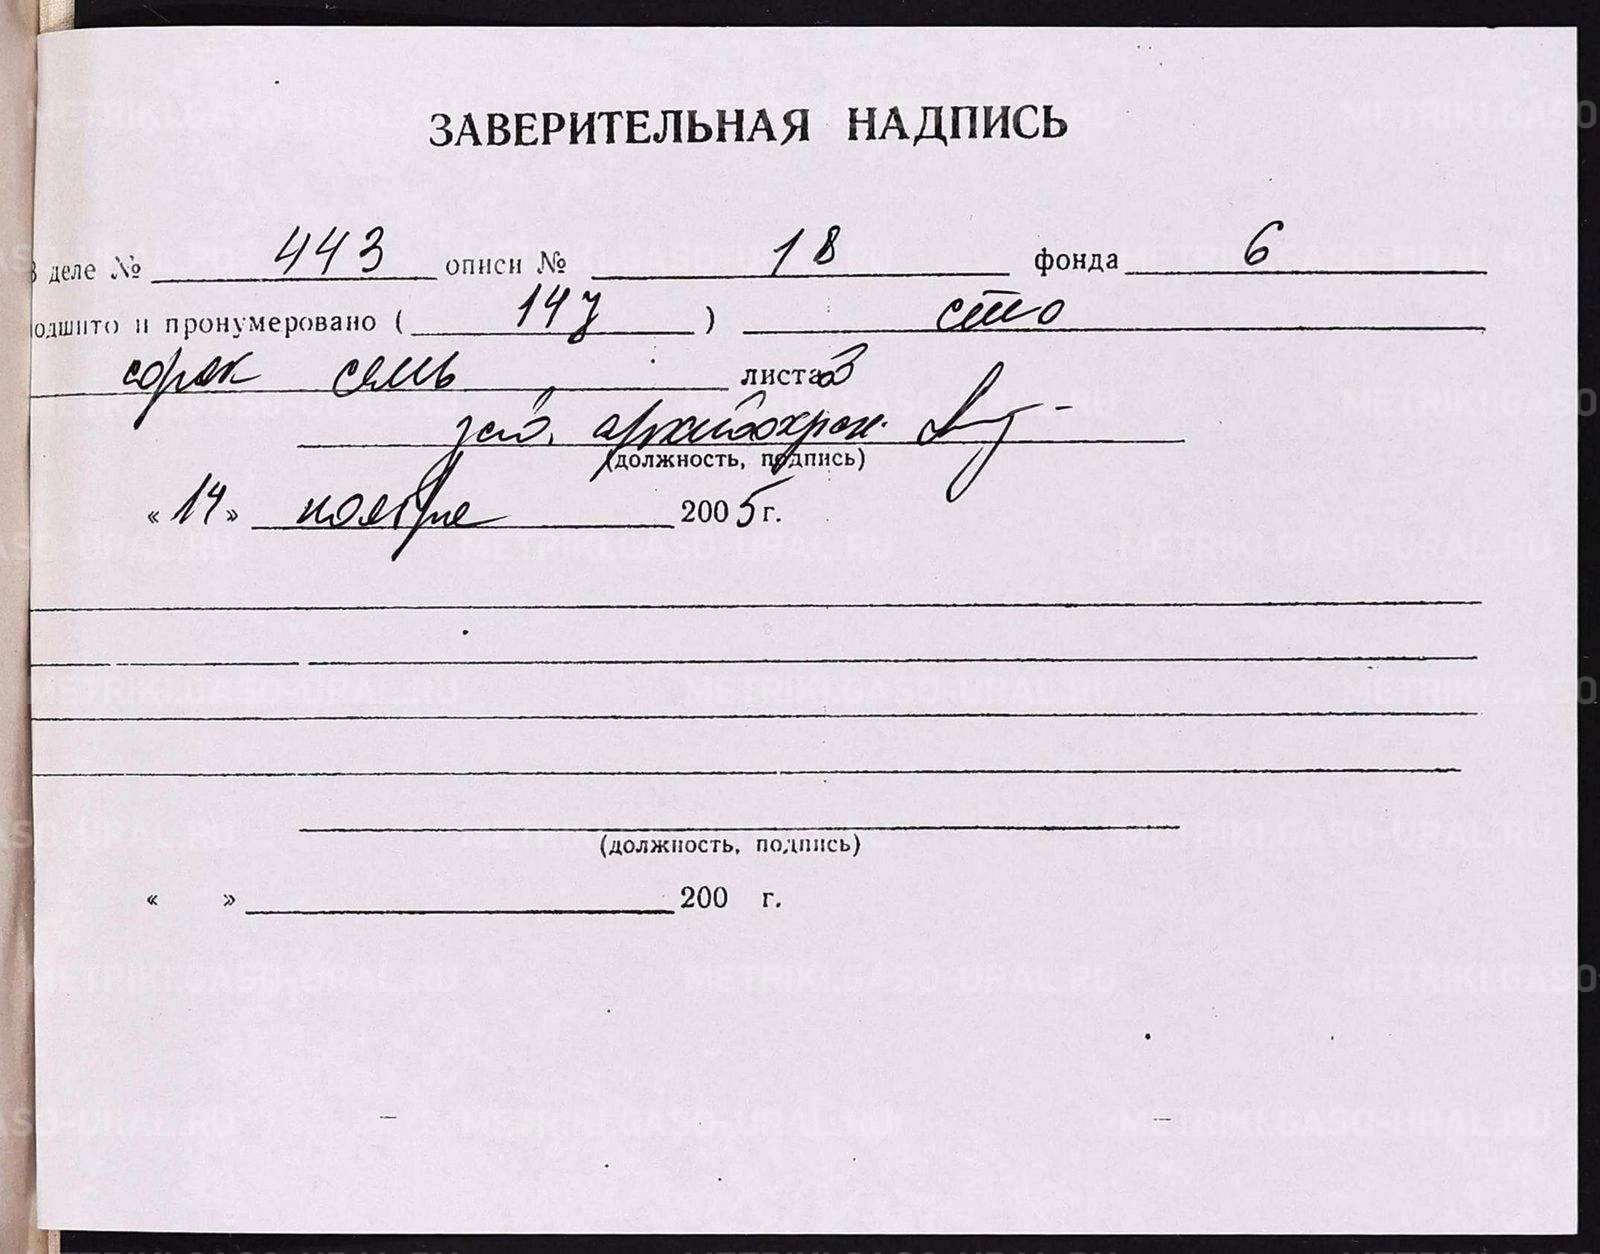 ЗАВЕРИТЕЛЬНАЯ НАДПИСЬ
В деле № 443 описи № 18 фонда 6
одшито и пронумеровано ( 147 ) сто
сорок семь листов
зав. архивохран.
(должность, подпись)
«14» ноября 2005 г.
(должность, подпись)
« » 200 г.
METRIKI.GASO-URAL.RU